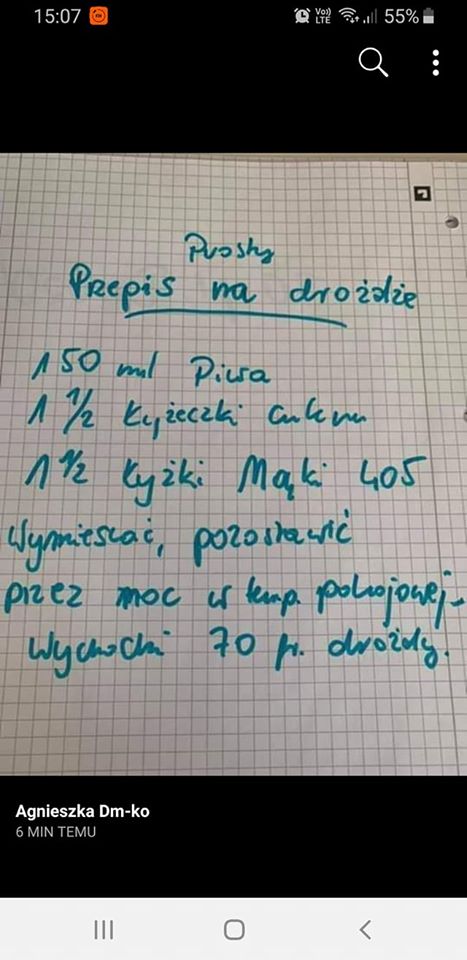 15:07 Vo)) LTE 55%
Prosty
Przepis na drożdże
150 ml Piwa
1 1/2 łyżeczki cukru
1 1/2 łyżki Mąki 405
Wymieszać, pozostawić
przez noc w temp. pokojowej.
Wychodzi 70 gr. drożdży.
Agnieszka Dm-ko
6 MIN TEMU